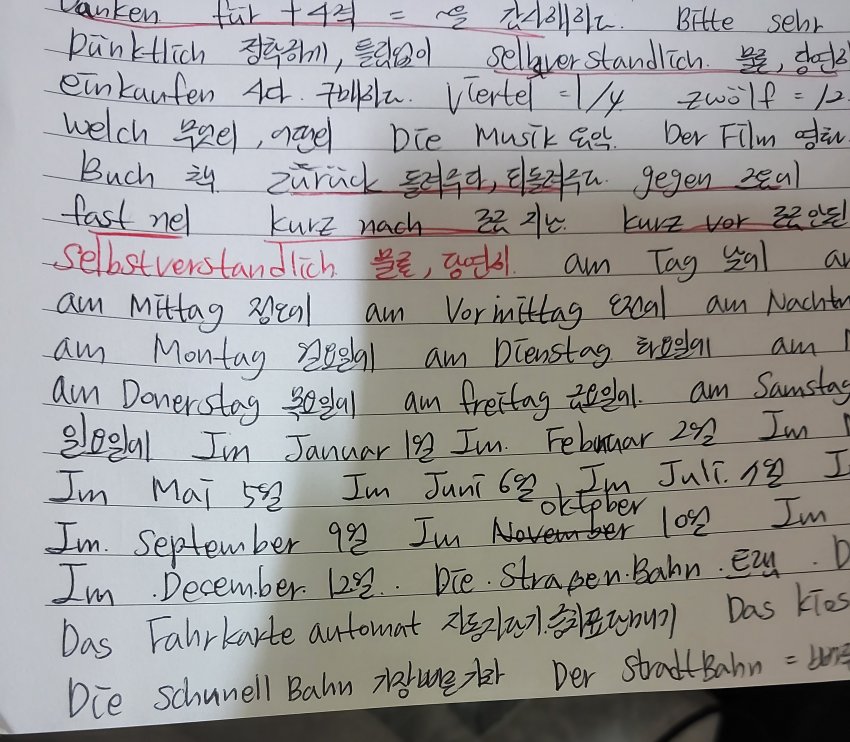 Danken für + 4격 = ~을 감사해하다. Bitte sehr
Pünktlich 정확하게, 틀림없이 selbverstandlich. 물론, 당연히
einkaufen 사다. 구매하다. Viertel = 1/4 zwölf = 12
welch 무엇이, 어떤이 Die Musik 음악. Der Film 영화
Buch 책 zürück 돌려주다, 되돌려주다. gegen
fast kurz nach 조금 지난 kurz vor 조금 안된
selbstverstandlich 물론, 당연히. am Tag 낮에
am Mittag 정오에 am Vormittag 오전에 am
am Montag 월요일에 am Dienstag 화요일에 am
am Donerstag 목요일에 am freitag 금요일에. am Samstag
일요일에 Im Januar 1월 Im. Februar 2월 Im
Im Mai 5월 Im Juni 6월, Im Juli. 7월
oktober
Im. September 9월 Im November 10월 Im
Im .December. 12월.. Die .Straßen.Bahn.
Das Fahrkarte automat 자동판매기. 승차표판매기 Das
Die schunell Bahn 가장빠른기차 Der StradtBahn =